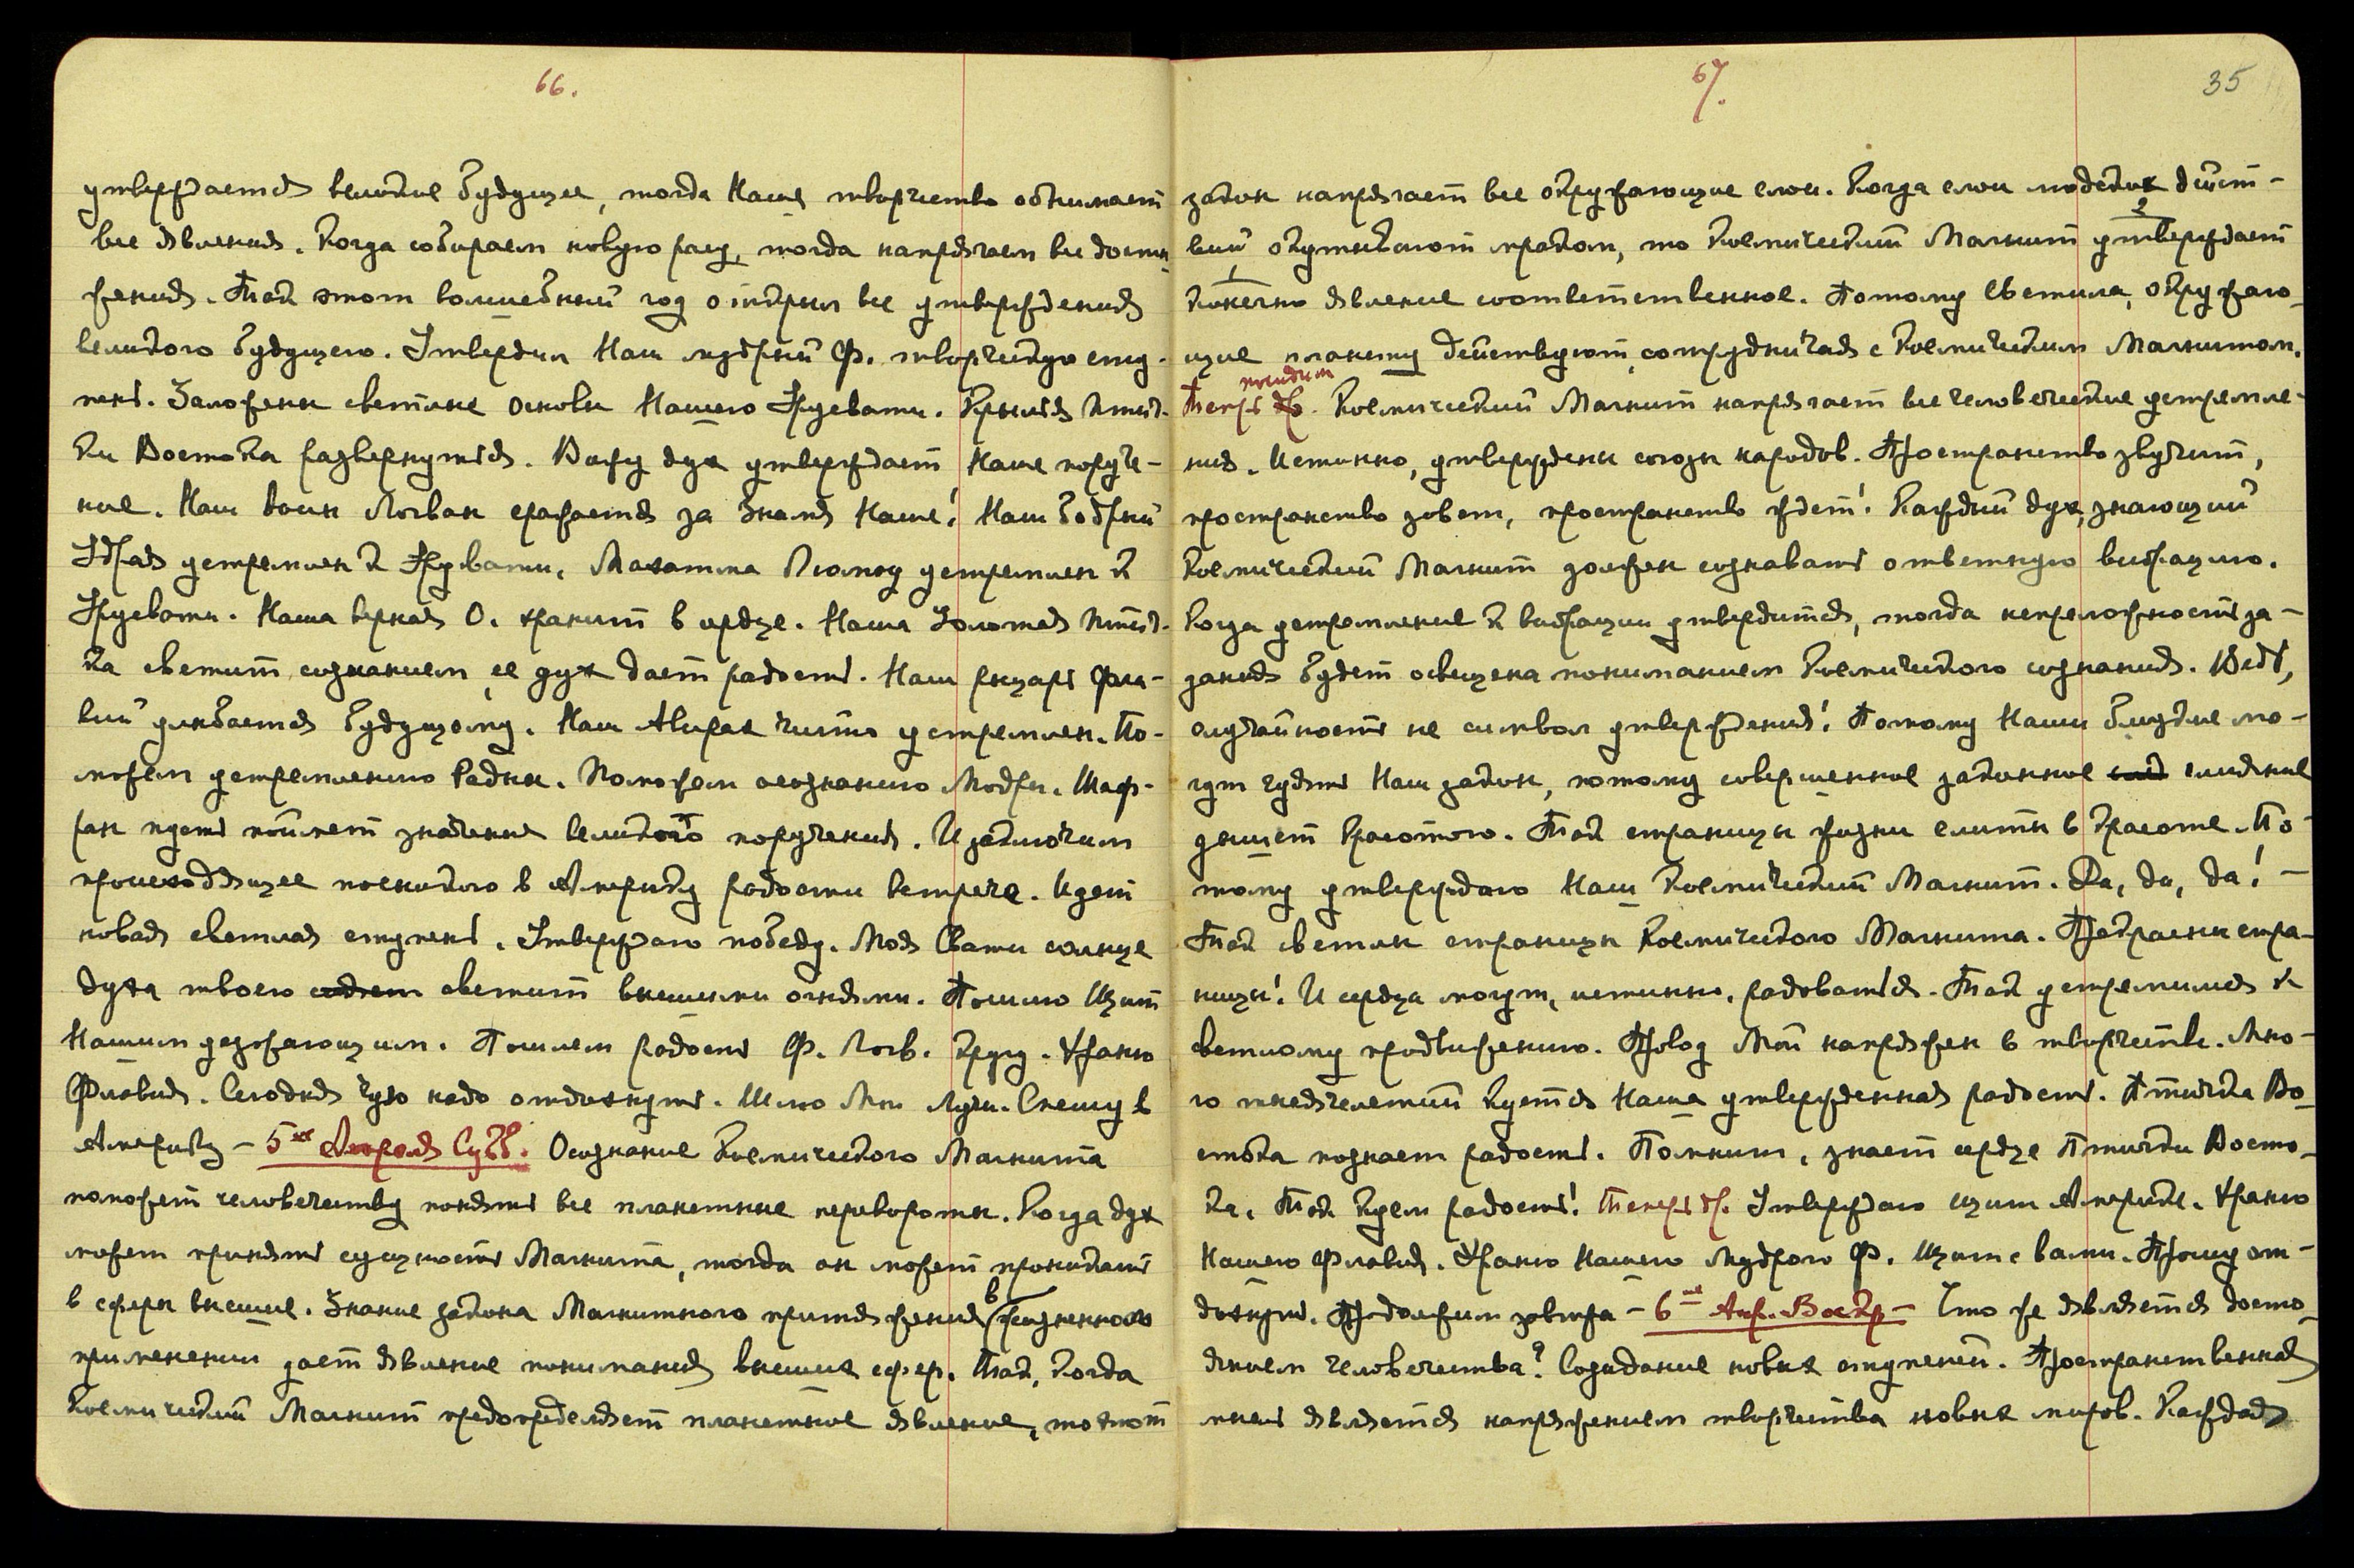 66.
утверждается великое будущее, тогда Наше творчество обнимает
все явления. Когда собираем новую расу, тогда напрягаем все дости-
жения. Так этот волшебный год открыл все утверждения
великого будущего. Утвердил Наш мудрый Ф. творческую сту-
пень. Заложены светлые основы Нашего Урусвати. Крылья птич-
ки Востока развернуться. Вижу дух утверждает Наше поруче-
ние. Наш воин Логван сражается за Знамя Наше! Наш бодрый
Удрая устремлен к Урусвати. Махатма Люмоу устремлен к
Урусвати. Наша верная О. хранит в сердце. Наша Золотая птич-
ка светит сознанием, ее дух дает радость. Наш рыцарь Фла-
вий улыбается будущему. Наш Авирах чисто устремлен. По-
можем устремлению Радны. Поможем осознанию Модры. Шаф-
ран пусть поймет значение великого поручения. И заключим
происходящее посылкою в Америку радости встрече. Идет
новая светлая ступень. Утверждаю победу. Моя Свати солнце
духа твоего светит высшими огнями. Пошлю Щит
Нашим уезжающим. Пошлем радость Ф. Логв. другу. Храню
Флавия. Сегодня чую надо отдохнуть. Шлю Мои Лучи. Спешу в
Америку – 5ое Апреля Субб. Осознание Космического Магнита
поможет человечеству понять все планетные перевороты. Когда дух
может принять сущность Магнита, тогда он может проникать
в сферы высшие. Знание закона Магнитного притяжения в жизненном
применении дает явление понимания высших сфер. Так, когда
Космический Магнит предопределяет планетное явление, то этот
67.
35
закон напрягает все окружающие слои. Когда слои людских дейст-
2
вий окутывают мраком, то Космический Магнит утверждает
1
конечно явление соответственное. Потому светила, окружаю-
щие планету действуют, сотрудничая с Космическим Магнитом.
посидим
Теперь др. Космический Магнит напрягает все человеческие устремле-
ния. Истинно, утверждены союзы народов. Пространство звучит,
пространство зовет, пространство ждет! Каждый дух, знающий
Космический Магнит должен сознавать ответную вибрацию.
Когда устремление к вибрации утвердится, тогда непреложность за-
дания будет освещена пониманием Космического сознания. Ведь,
случайность не символ утверждения! Потому Наши близкие мо-
гут чуять Наш закон, потому совершенное законное слияние
дышет Красотою. Так страницы жизни слиты в красоте. По-
тому утверждаю Наш Космический Магнит. Да, да, да! –
Так светлы страницы Космического Магнита. Прекрасны стра-
ницы! И сердца могут, истинно, радоваться. Так устремимся к
светлому продвижению. Провод Мой напряжен в творчестве. Мно-
го тысячелетий куется Наша утвержденная радость. Птичка Во-
стока познает радость. Помнит, знает сердце Птички Восто-
ка. Так куем радость! Теперь др. Утверждаю щит Америке. Храню
Нашего Флавия. Храню Нашего Мудрого Ф. Щит с вами. Прошу от-
дохнуть. Продолжим завтра – 6ое Апр. Воскр – Что же является досто-
янием человечества? Созидание новых ступеней. Пространственная
мысль является напряжением творчества новых миров. Каждая